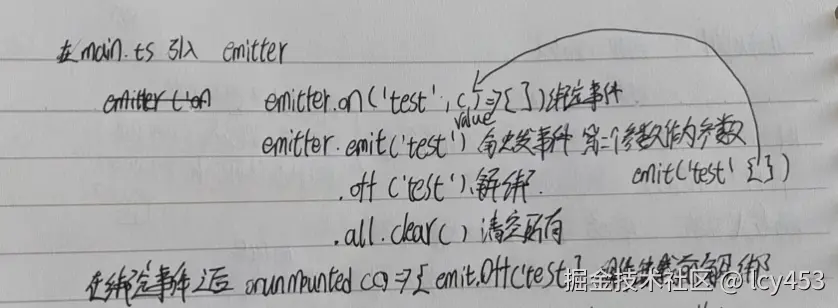 在main.ts 引入 emitter
emitter.on('test', () => { }) 绑定事件
value
emitter.emit('test') 触发事件 第二个参数作为参数
emit('test' {})
.off('test') 解绑.
.all.clear() 清空所有
在绑定事件之后 onunmounted(() => { emit.off('test'
掘金技术社区 @ lcy453